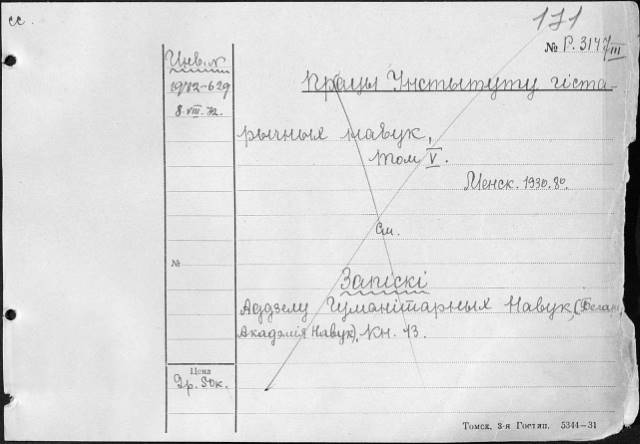 сс.
171
№ Р.3147/III
Инв.№
19/82-629
8.VIII.72.
Працы Інстытуту гіста-
рычных навук,
том V.
Менск. 1930. 8°.
См.
№
Запіскі
Аддзелу Гуманітарных Навук, (Белар.
Акадэмія Навук), Кн. 13.
Цена
2р. 50к.
Томск. 3-я Гостип. 5344—31